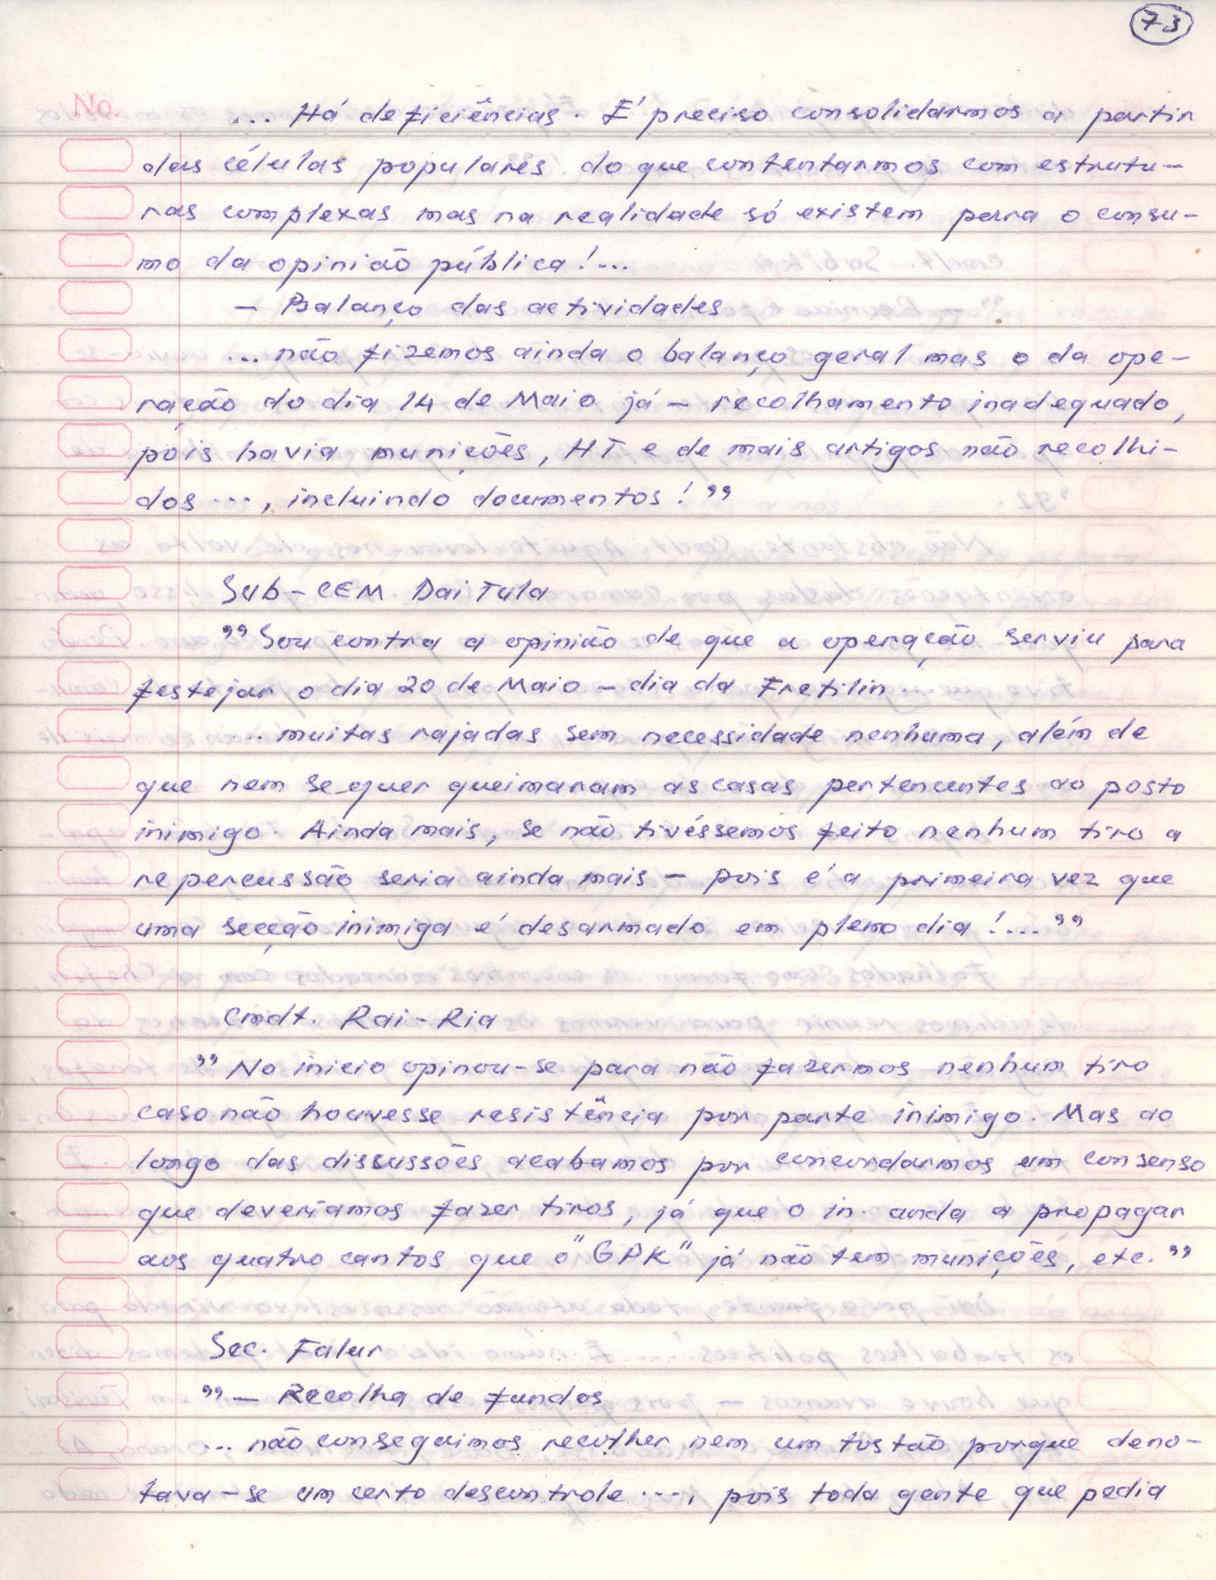 73
No.
... Há deficiências. É preciso consolidarmos a partir
das células populares do que contentarmos com estrutu-
ras complexas mas na realidade só existem para o consu-
mo da opinião pública!...
- Balanço das actividades
... não fizemos ainda o balanço geral mas o da ope-
ração do dia 14 de Maio já - recolhamento inadequado,
pois havia munições, HT e de mais artigos não recolhi-
dos ..., incluindo documentos! "
Sub-CEM Dai Tula
" Sou contra a opinião de que a operação serviu para
festejar o dia 20 de Maio - dia da Fretilin...
... muitas rajadas sem necessidade nenhuma, além de
que nem se quer queimaram as casas pertencentes ao posto
inimigo. Ainda mais, se não tivéssemos feito nenhum tiro a
repercussão seria ainda mais - pois é a primeira vez que
uma secção inimiga é desarmado em pleno dia!... "
Cmdt. Rai-Ria
" No inicio opinou-se para não fazermos nenhum tiro
caso não houvesse resistência por parte inimigo. Mas ao
longo das discussões acabamos por concordarmos um consenso
que deveríamos fazer tiros, já que o in. anda a propagar
aos quatro cantos que o "GPK" já não tem munições, etc. "
Sec. Falur
" - Recolha de fundos
... não conseguimos recolher nem um tostão porque deno-
tava-se um certo descontrole ..., pois toda gente que pedia